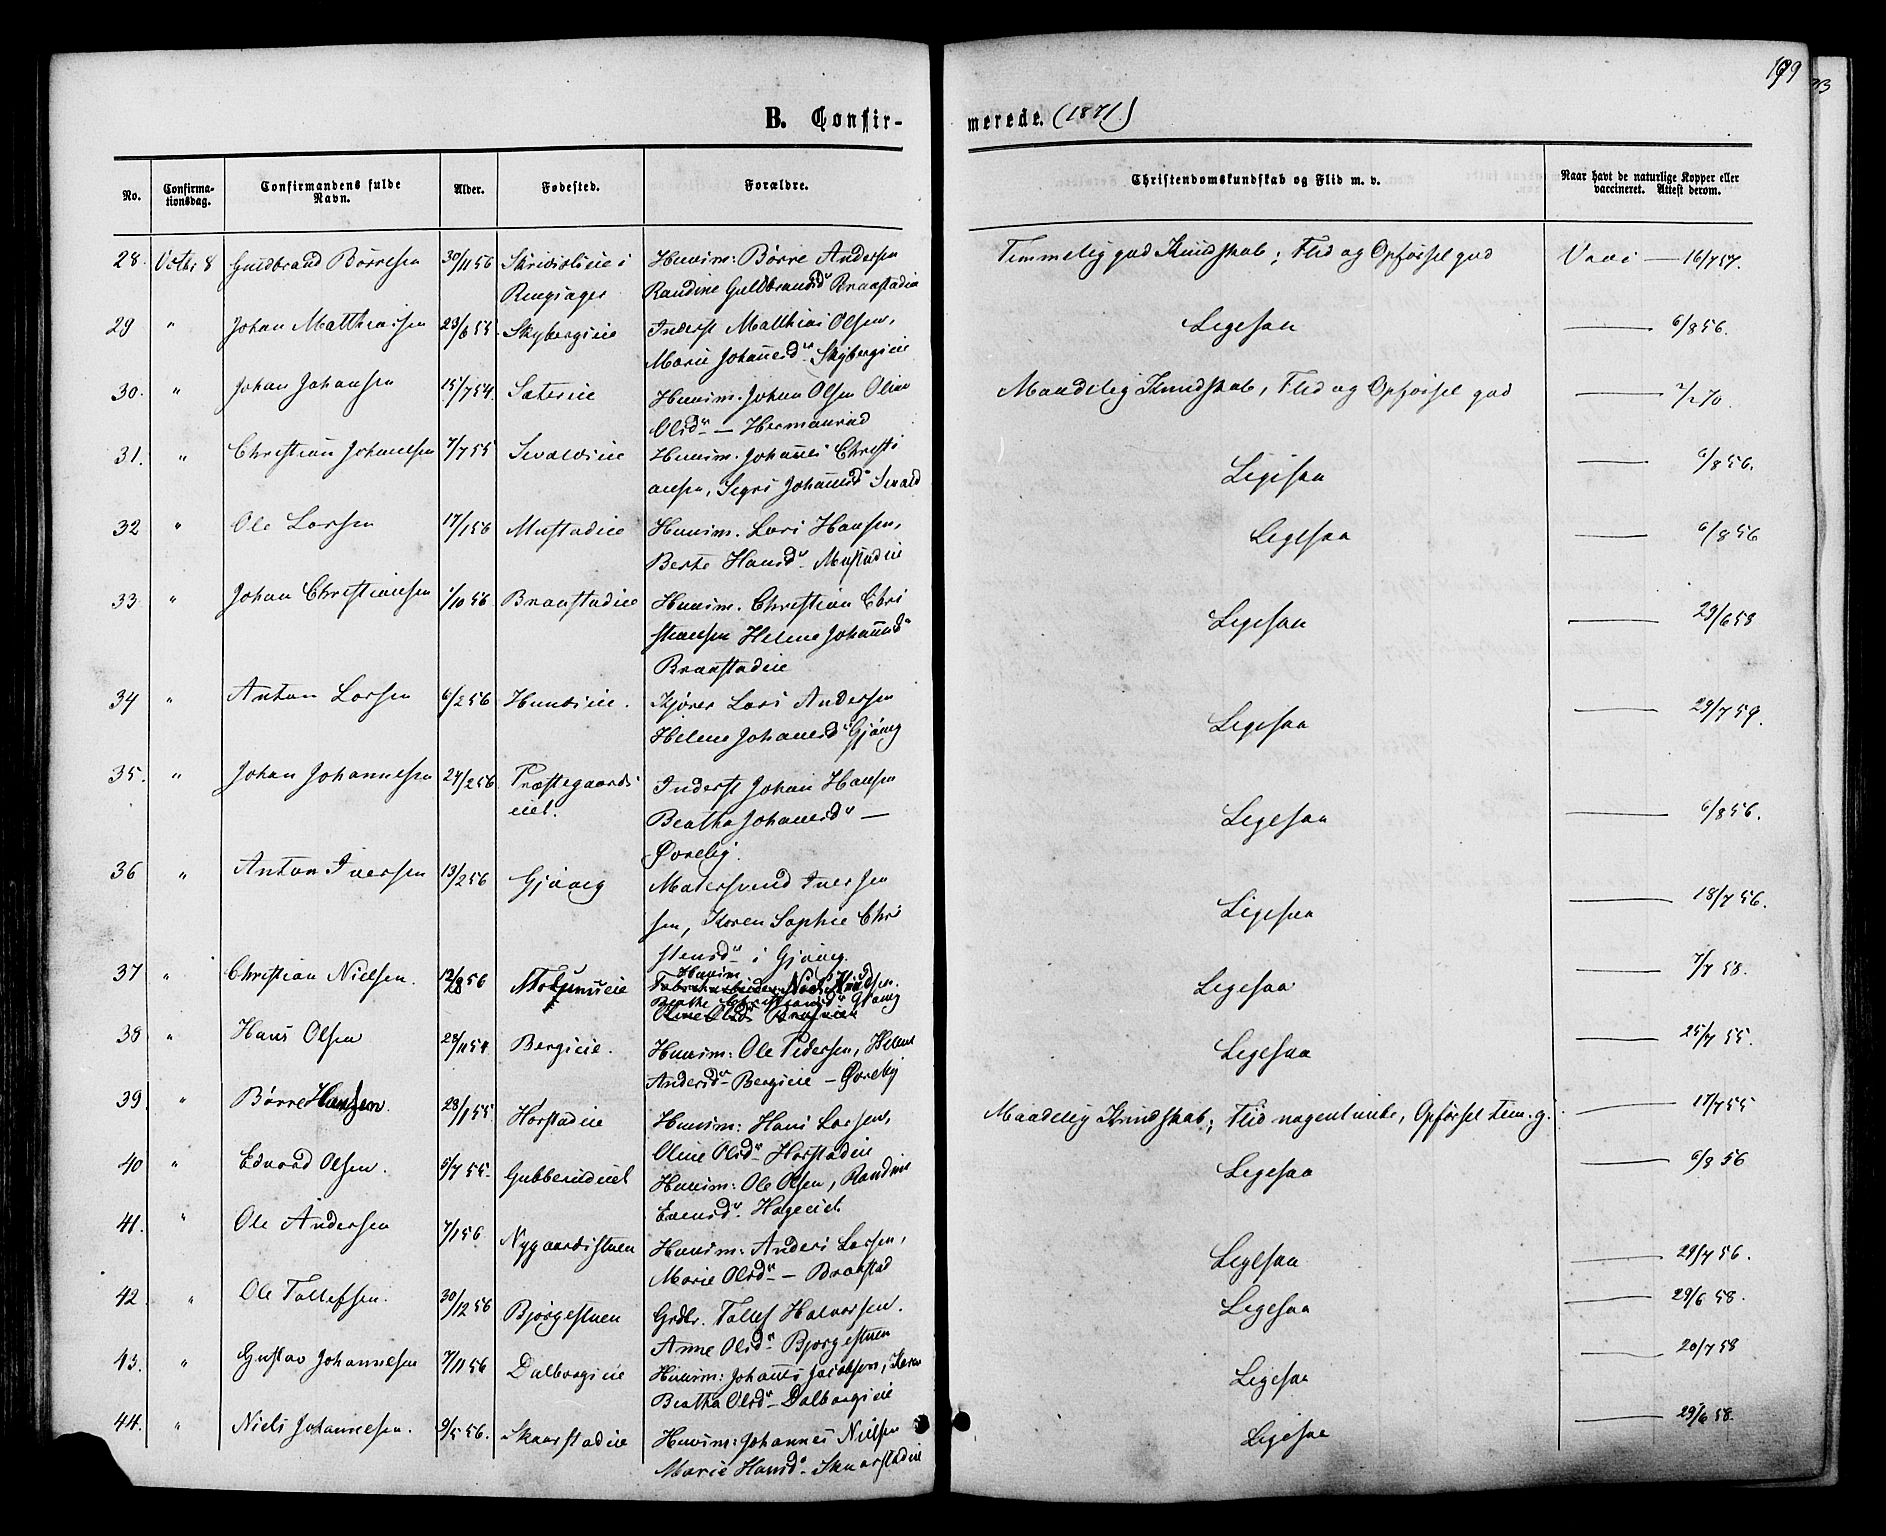 199
B. Confir-
merede. (1871)
No. Confirma-tionsdag. Confirmandens fulde Navn. Alder. Fødested. Forældre. Christendomskundskab og Flid m. v. Naar havt de naturlige Kopper eller vaccineret. Attest derom.
28. Octbr 8 Guldbrand Børresen 30/11 56 i Ringsager Huusm: Børre Andersen Randine Guldbrandsdr Braastadeie Temmelig god Kundskab; Flid og Opførsel god Vacc — 16/7 57.
29 " Johan Matthiassen 23/6 55 Skybergseie Inderst Matthias Olsen, Marie Johansdr Skybergseie Ligesaa — 6/8 56.
30. " Johan Johansen 15/7 54. Sætereie Huusm. Johan Olsen Oline Olsdr — Hermanrud Maadelig Kundskab, Flid og Opførsel god — 2/2 70.
31. " Christian Johansen 7/7 55 Sevaldseie Huusm. Johannes Christiansen, Sigri Johansd Sevald Ligesaa — 6/8 56.
32 " Ole Larsen 17/1 56 Mustadeie Huusm. Lars Hansen, Berte Hansdr Mustadeie Ligesaa — 6/8 56
33 " Johan Christiansen 1/10 56 Braastadeie Huusm. Christian Christiansen Helene Johansdr Braastadeie Ligesaa — 29/6 58
34 " Anton Larsen 6/2 56 Hundseie. Kjører Lars Andersen Helene Johansdr Gjøvig Ligesaa — 29/7 59.
35. " Johan Johannesen 24/2 56 Præstegaardseiet. Inderst Johan Hansen Beatha Johansdr — Øvreby. Ligesaa — 6/8 56.
36 " Anton Iversen 13/2 56 Gjøvig Matersvend Iver sen, Karen Sophie Christensdr i Gjøvig. Ligesaa — 18/7 56.
37 " Christian Nielsen. 12/8 56 Huusm. Beathe Christiansdr Gjøvig Ligesaa — 7/7 58.
38 " Hans Olsen 28/11 54 Bergseie. Huusm: Ole Pedersen, Helene Andersdr Bergseie — Øvreby Ligesaa — 25/7 55.
39. " Børre Hansen. 28/1 55 Horstadeie Huusm: Hans Larsen, Oline Olsdr Horstadeie Maadelig Kundskab; Flid nogenlunde, Opførsel tem. g. — 17/7 55
40 " Edvard Olsen. 5/7 55. Gubberudeiet Huusm: Ole Olsen, Randine Evensdr. Hageeiet Ligesaa — 6/8 56
41. " Ole Andersen 7/1 56 Nygaardsstuen Huusm: Anders Larsen, Marie Olsdr — Braastad Ligesaa — 29/7 56.
42. " Ole Tollefsen. 30/12 56 Bjørgestuen Grdbr. Tollef Halvorsen. Anne Olsdr Bjørgestuen Ligesaa — 29/6 58.
43. " Gustav Johannesen 7/11 56 Dalborgseie Huusm: Johannes Jacobsen, Karen Beatha Olsdr Dalborgseie Ligesaa — 20/7 58
44. " Niels Johannesen. 9/5 56. Skaarstadeie Huusm: Johannes Nielsen Marie Hansd. Skaarstadeie Ligesaa — 29/6 58.